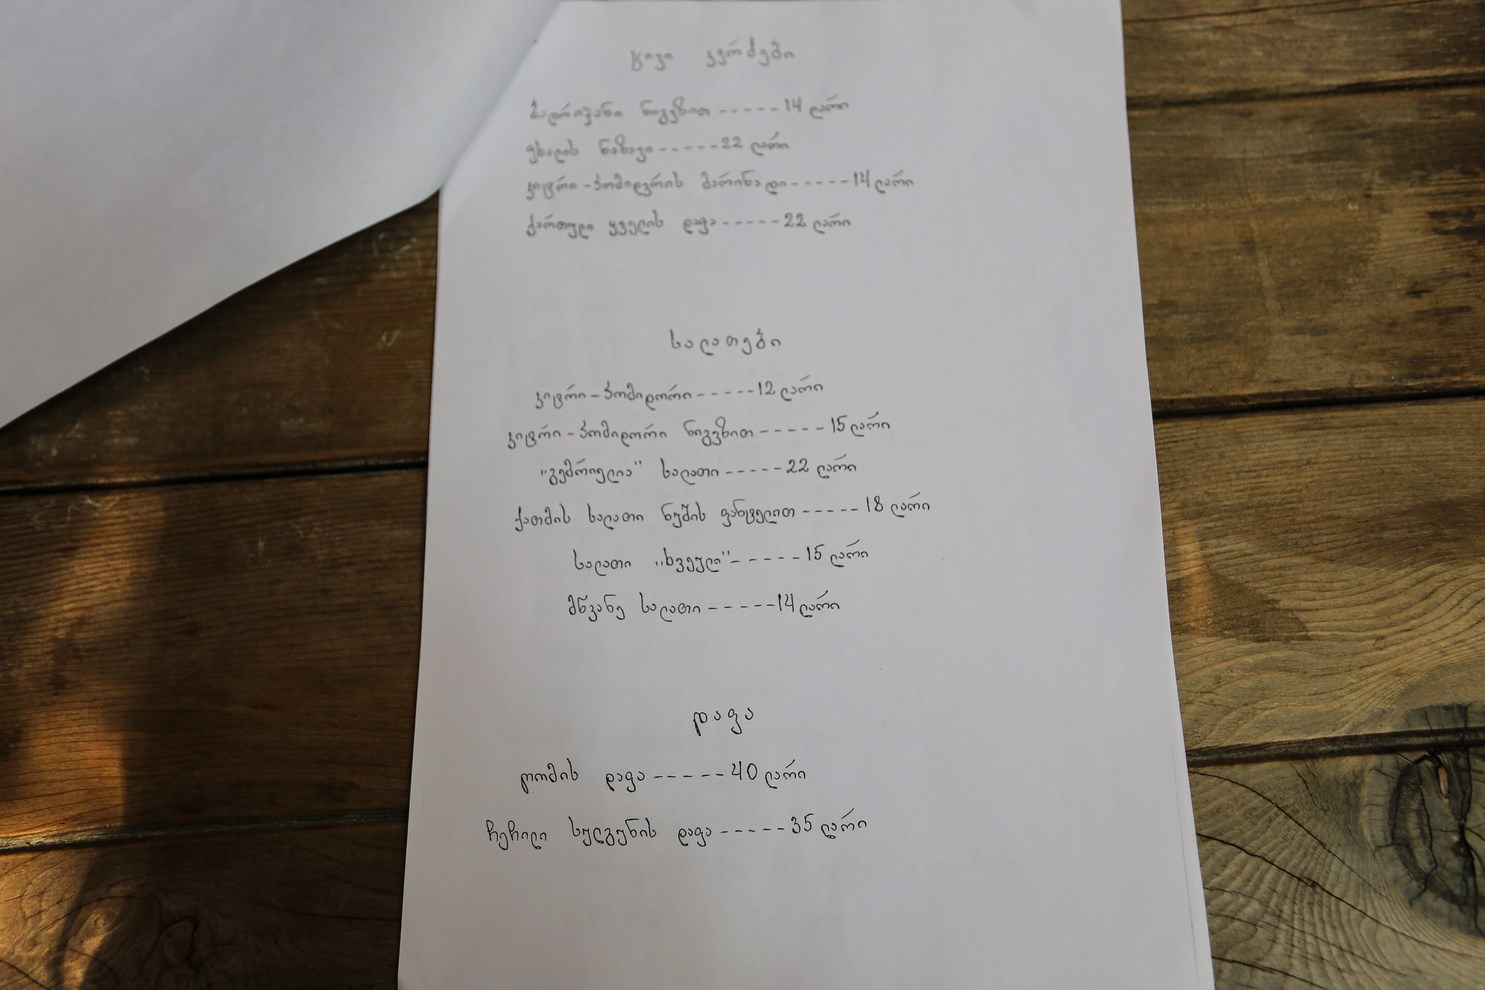 ცივი კერძები
ბადრიჯანი ნიგვზით -----14 ლარი
ფხალის ნაზავი-----22 ლარი
კიტრი-პომიდვრის მარინადი-----14 ლარი
ქართული ყველის დაფა-----22 ლარი
სალათები
კიტრი-პომიდორი-----12 ლარი
კიტრი-პომიდორი ნიგვზით-----15 ლარი
"გემრიელია" სალათი-----22 ლარი
ქათმის სალათი ნუშის ფანტელით-----18 ლარი
სალათი "ხვეული"-----15 ლარი
მწვანე სალათი-----14 ლარი
დაფა
ღომის დაფა-----40 ლარი
ჩეჩილი სულგუნის დაფა-----35 ლარი